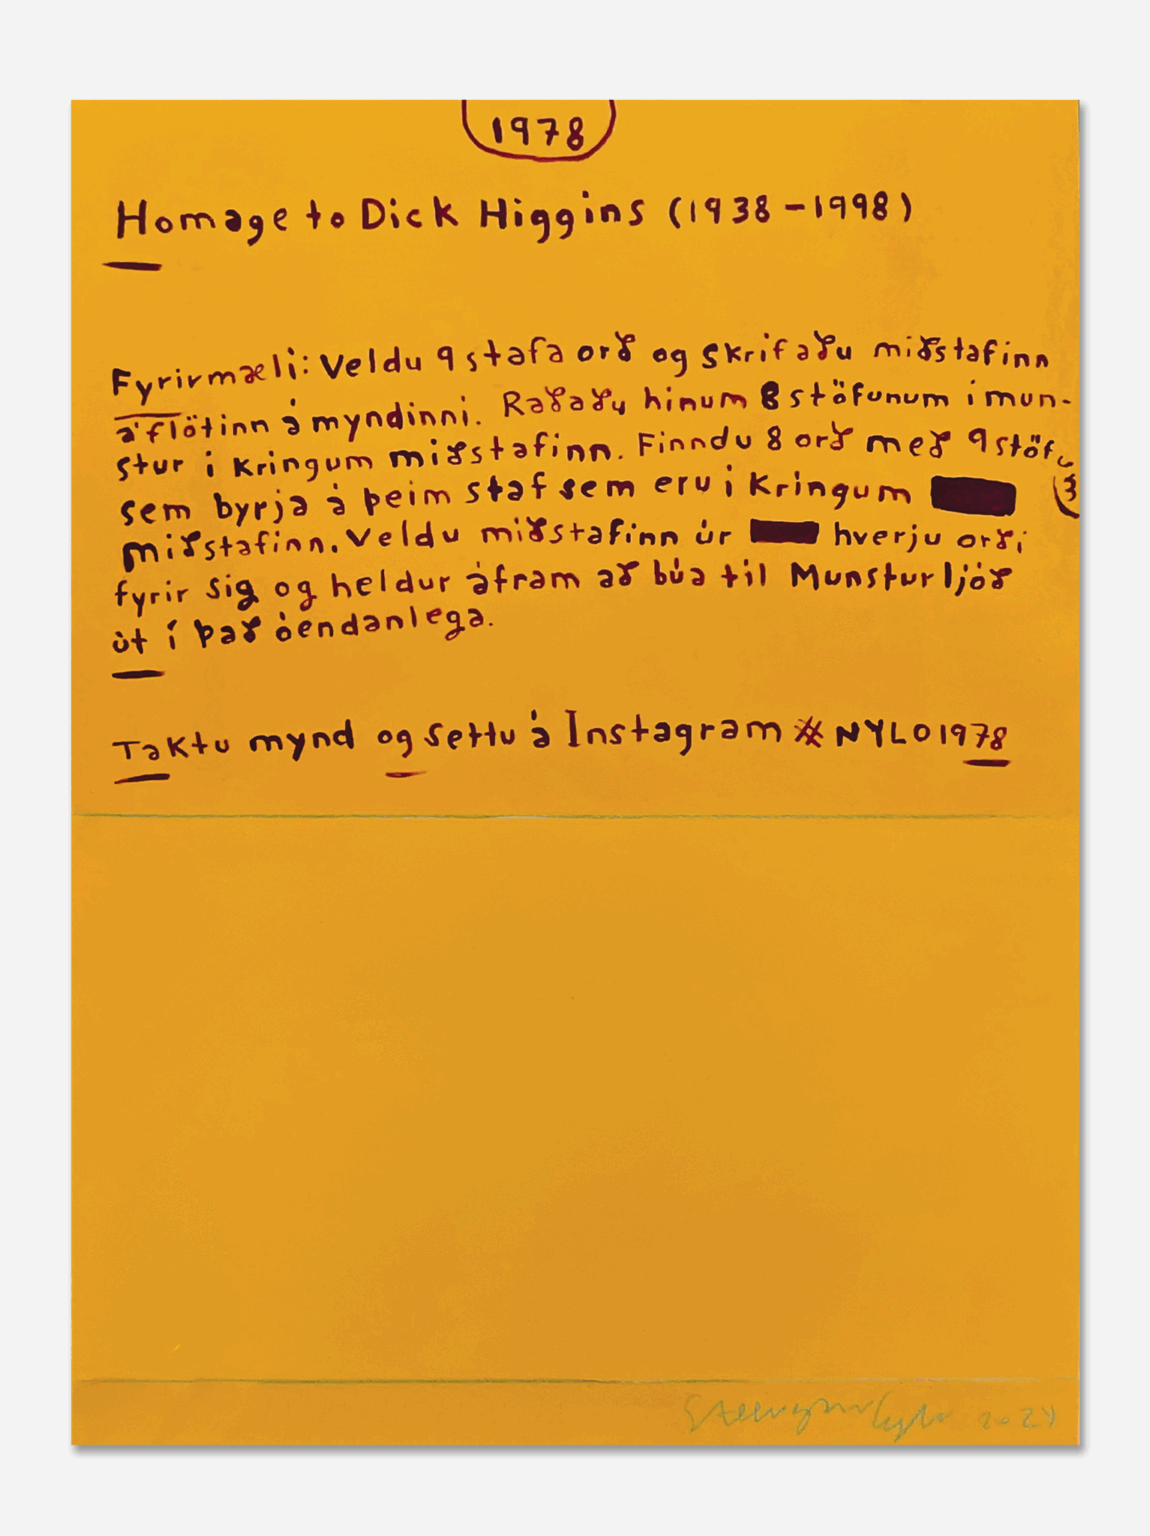 1978
Homage to Dick Higgins (1938-1998)
Fyrirmæli: Veldu 9 stafa orð og skrifaðu miðstafinn
á flötinn á myndinni. Raðaðu hinum 8 stöfunum í mun-
stur í kringum miðstafinn. Finndu 8 orð með 9 stöfu
sem byrja á þeim staf sem eru í kringum
miðstafinn. Veldu miðstafinn úr hverju orði
fyrir sig og heldur áfram að búa til Munsturljóð
út í það óendanlega.
Taktu mynd og settu á Instagram # NÝLO1978
2024